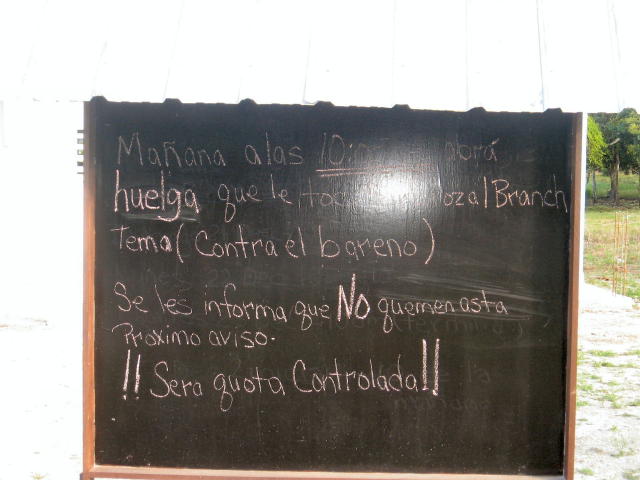 Mañana alas 10: abrá
huelga que le Branch
Tema (Contra el bareno)
Se les informa que No quemen asta
Proximo aviso.
!! Sera quota Controlada!!